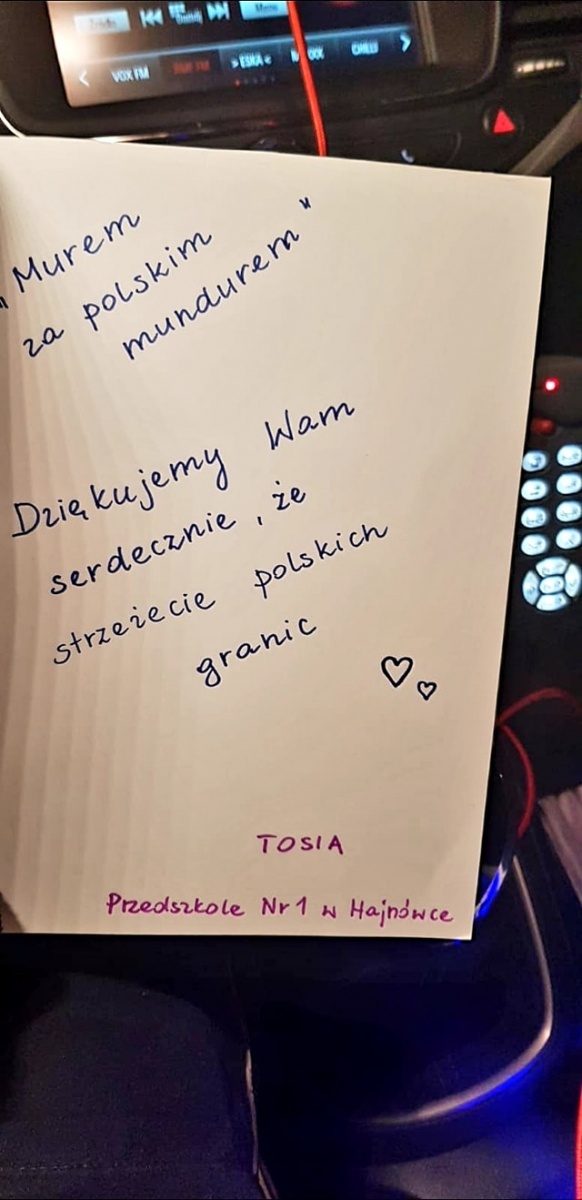 VOX FM
RMF FM
>ESKA<
CHILLI
„Murem
za polskim
mundurem"
Dziękujemy Wam
serdecznie, że
strzeżecie polskich
granic
TOSIA
Przedszkole Nr 1 w Hajnówce